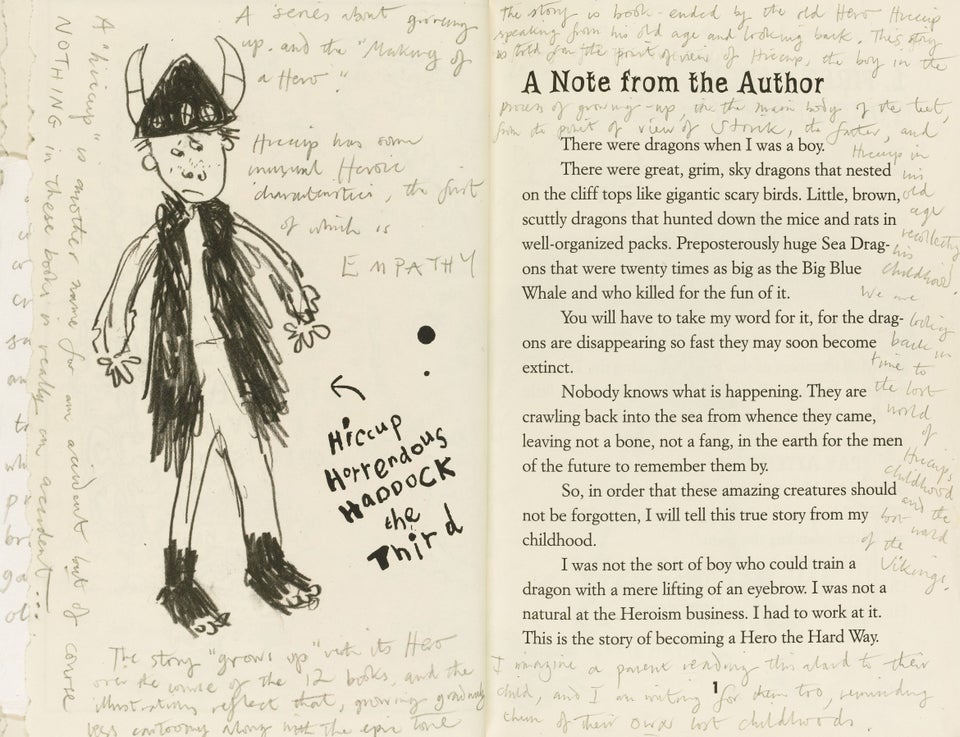 A series about growing
up. and the "Making of
a Hero".
Hiccup has some
unusual Heroic
characteristics, the first
of which is
EMPATHY
A "hiccup" is another name for an accident but of course
NOTHING in these books is really an accident...
Hiccup
Horrendous
HADDOCK
the
Third
The story "grows up" with its Hero
over the course of the 12 books, and the
illustrations reflect that, growing gradually
less cartoony along with the epic tone
The story is book-ended by the old Hero Hiccup
speaking from his old age and looking back. This story
is told from the point of view of Hiccup, the boy in the
A Note from the Author
process of growing-up, in the main body of the text,
from the point of view of Stoick, the father, and
Hiccup in
his
old
age
recollecting
his
childhood.
We are
looking
back in
time to
the lost
world
of
Hiccup's
childhood
and the
lost world
of the
Vikings.
There were dragons when I was a boy.
There were great, grim, sky dragons that nested
on the cliff tops like gigantic scary birds. Little, brown,
scuttly dragons that hunted down the mice and rats in
well-organized packs. Preposterously huge Sea Drag-
ons that were twenty times as big as the Big Blue
Whale and who killed for the fun of it.
You will have to take my word for it, for the drag-
ons are disappearing so fast they may soon become
extinct.
Nobody knows what is happening. They are
crawling back into the sea from whence they came,
leaving not a bone, not a fang, in the earth for the men
of the future to remember them by.
So, in order that these amazing creatures should
not be forgotten, I will tell this true story from my
childhood.
I was not the sort of boy who could train a
dragon with a mere lifting of an eyebrow. I was not a
natural at the Heroism business. I had to work at it.
This is the story of becoming a Hero the Hard Way.
I imagine a parent reading this aloud to their
child, and I am writing for them too, reminding
them of their own lost childhoods
1